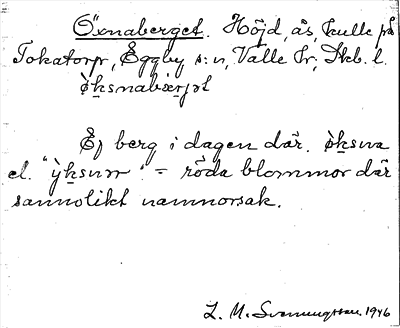 Öxnaberget. Höjd, ås, kulle på
Tokatorp, Eggby s:n, Valle hr, Skb. l.
Ej berg i dagen där. øksna
el. "ỳksnɷr" = röda blommor där
sannolikt namnorsak.
L. M. Svenungsson. 1946